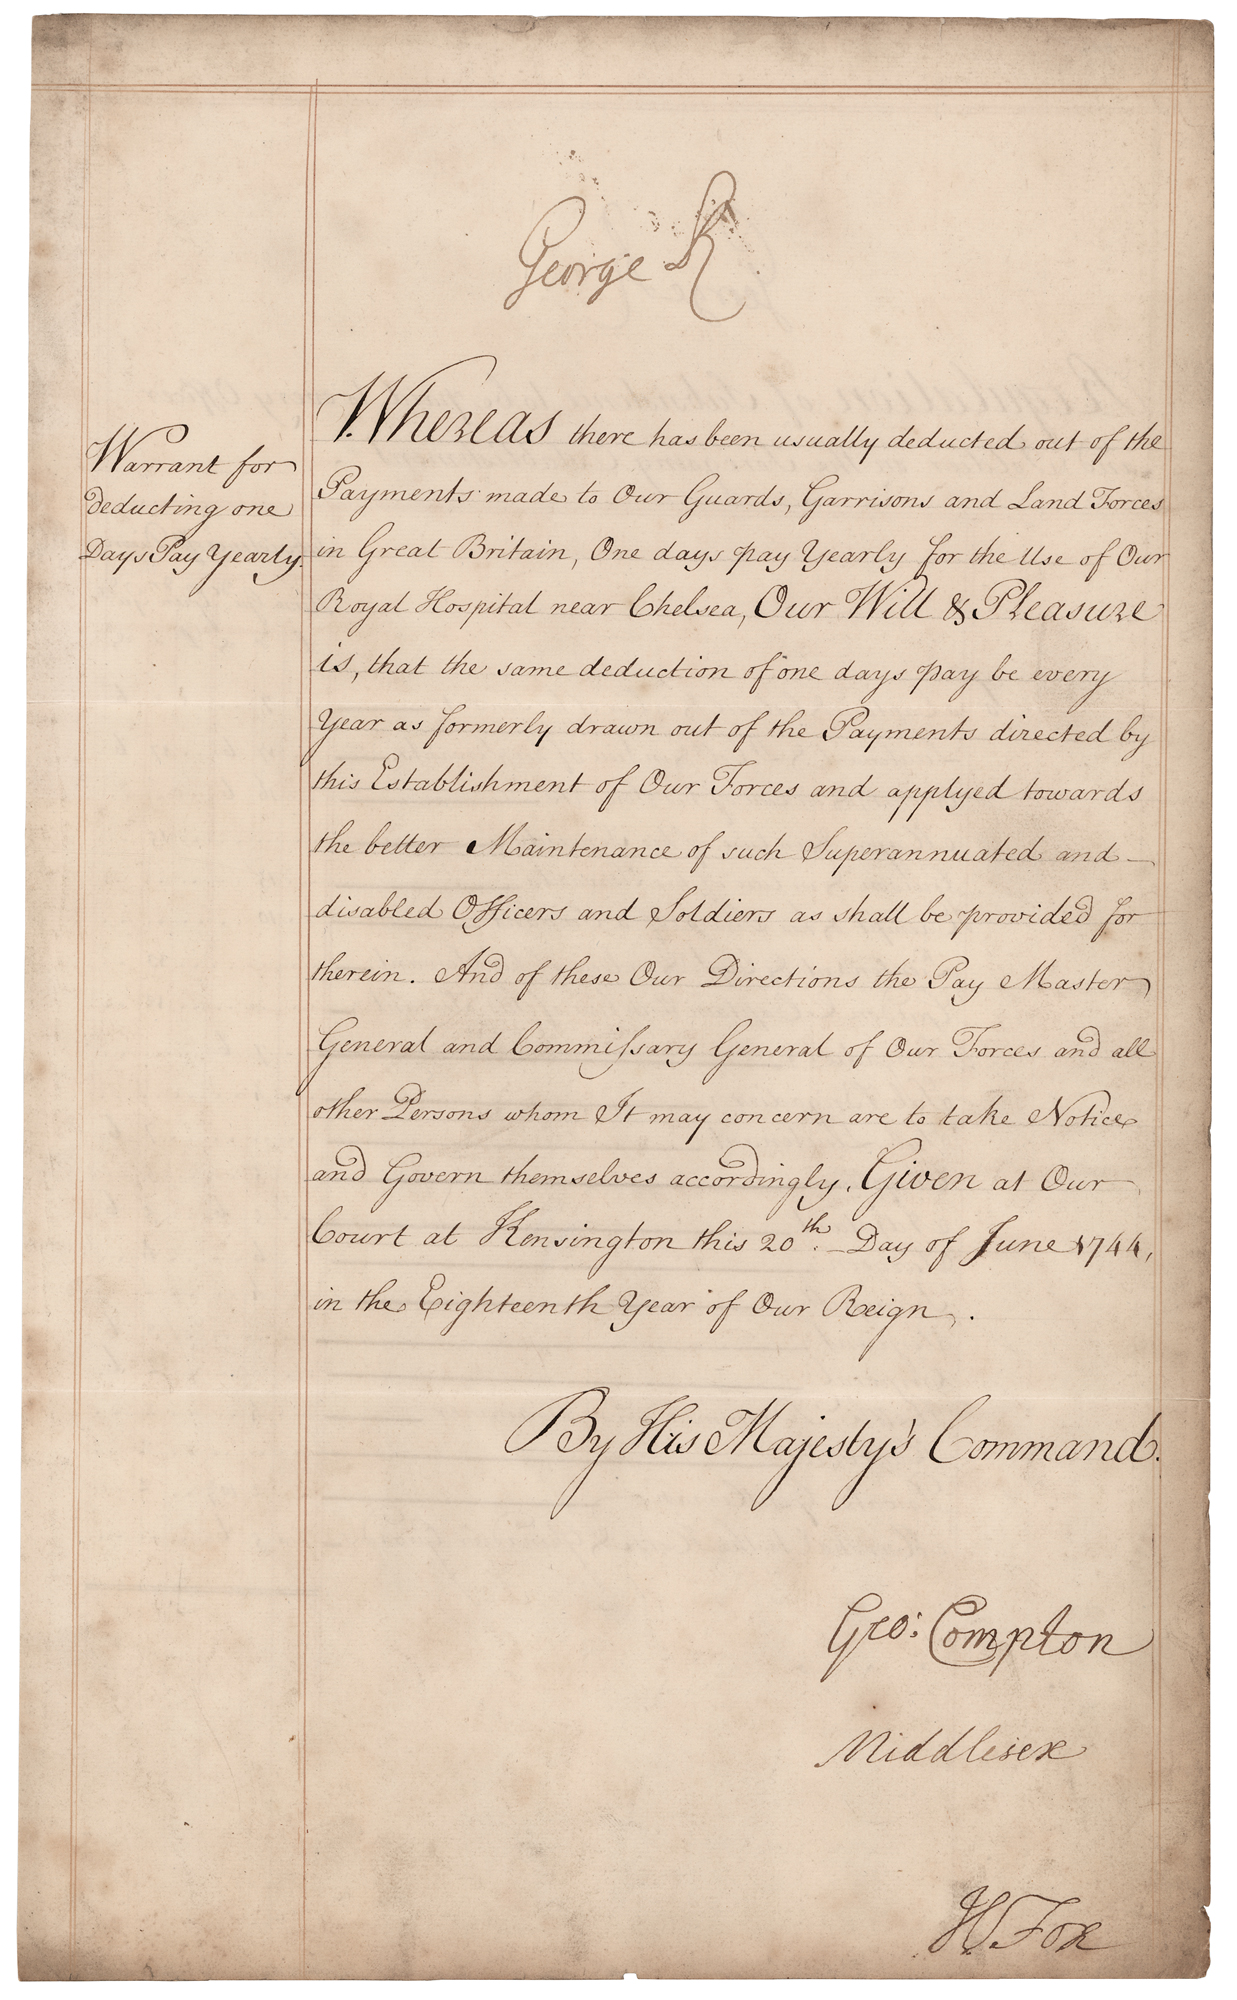 George R
Warrant for
deducting one
Days Pay Yearly.
Whereas there has been usually deducted out of the
Payments made to Our Guards, Garrisons and Land Forces
in Great Britain, One days pay Yearly for the Use of Our
Royal Hospital near Chelsea, Our Will & Pleasure
is, that the same deduction of one days pay be every
Year as formerly drawn out of the Payments directed by
this Establishment of Our Forces and applyed towards
the better Maintenance of such Superannuated and
disabled Officers and Soldiers as shall be provided for
therein. And of these Our Directions the Pay Master
General and Commiſsary General of Our Forces and all
other Persons whom It may concern are to take Notice
and Govern themselves accordingly. Given at Our
Court at Kensington this 20th. Day of June 1744,
in the Eighteenth Year of Our Reign.
By His Majesty's Command.
Geo: Compton
Middlesex
H Fox